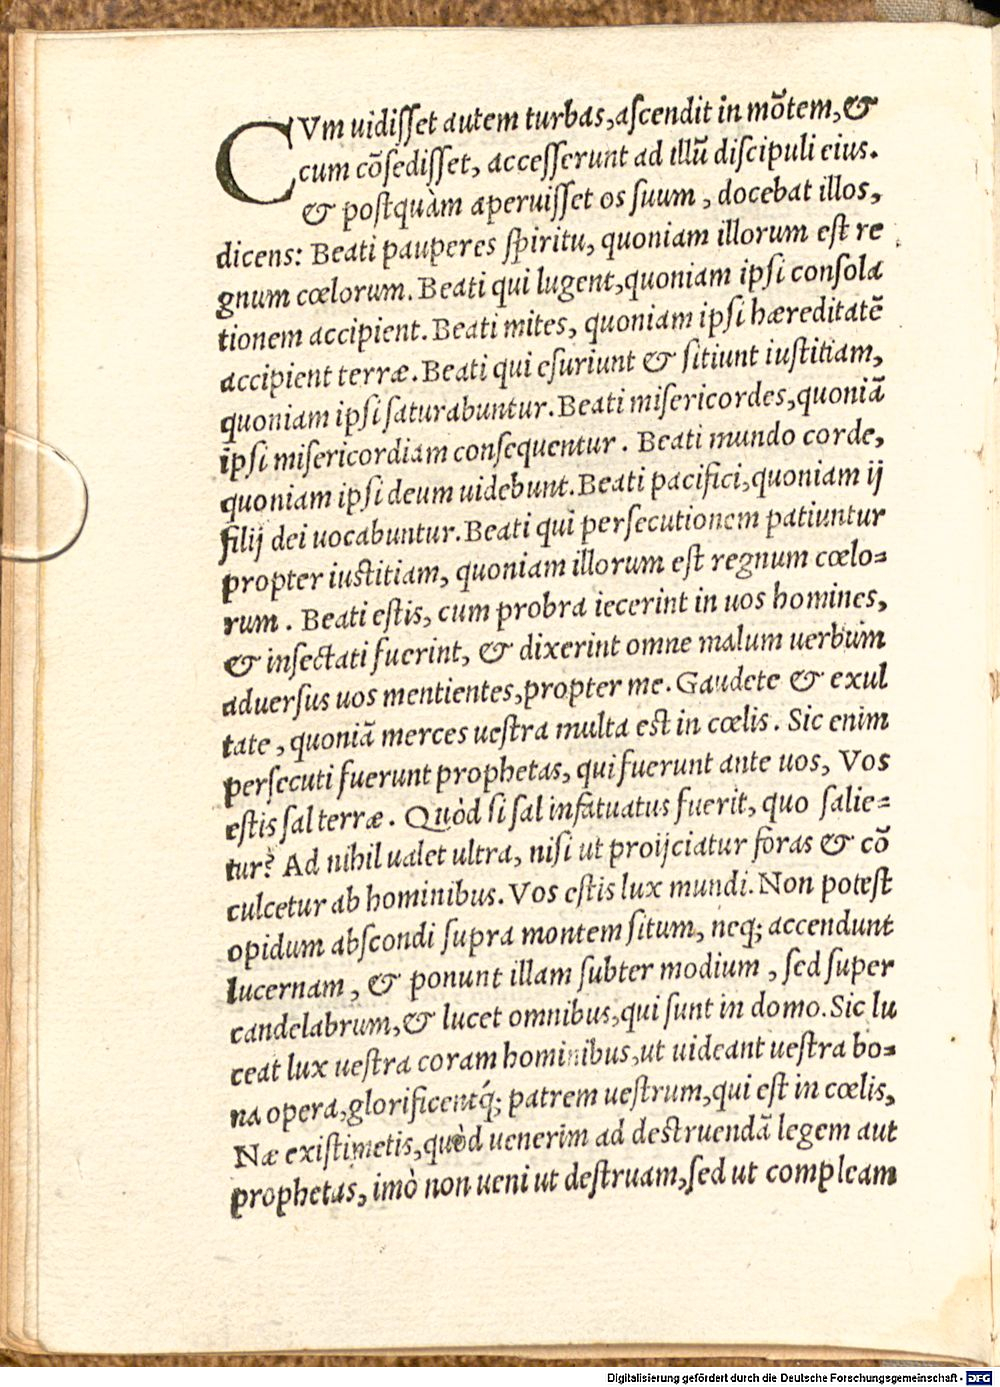 CVm uidiſſet autem turbas, aſcendit in mõtem, &
cum cõſediſſet, acceſſerunt ad illũ diſcipuli eius.
& poſtquàm aperuiſſet os ſuum, docebat illos,
dicens: Beati pauperes ſpiritu, quoniam illorum eſt re
gnum cœlorum. Beati qui lugent, quoniam ipſi conſola
tionem accipient. Beati mites, quoniam ipſi hæreditatẽ
accipient terræ. Beati qui eſuriunt & ſitiunt iuſtitiam,
quoniam ipſi ſaturabuntur. Beati miſericordes, quoniã
ipſi miſericordiam conſequentur. Beati mundo corde,
quoniam ipſi deum uidebunt. Beati pacifici, quoniam ij
filij dei uocabuntur. Beati qui perſecutionem patiuntur
propter iuſtitiam, quoniam illorum eſt regnum cœlo=
rum. Beati eſtis, cum probra iecerint in uos homines,
& inſectati fuerint, & dixerint omne malum uerbum
aduerſus uos mentientes, propter me. Gaudete & exul
tate, quoniã merces ueſtra multa eſt in cœlis. Sic enim
perſecuti fuerunt prophetas, qui fuerunt ante uos, Vos
eſtis ſal terræ. Quòd ſi ſal infatuatus fuerit, quo ſalie=
tur? Ad nihil ualet ultra, niſi ut proijciatur foras & cõ
culcetur ab hominibus. Vos eſtis lux mundi. Non poteſt
opidum abſcondi ſupra montem ſitum, neq; accendunt
lucernam, & ponunt illam ſubter modium, ſed ſuper
candelabrum, & lucet omnibus, qui ſunt in domo. Sic lu
ceat lux ueſtra coram hominibus, ut uideant ueſtra bo=
na opera, glorificentq́; patrem ueſtrum, qui eſt in cœlis,
Næ exiſtimetis, quòd uenerim ad deſtruendã legem aut
prophetas, imò non ueni ut deſtruam, ſed ut compleam
Digitalisierung gefördert durch die Deutsche Forschungsgemeinschaft - DFG